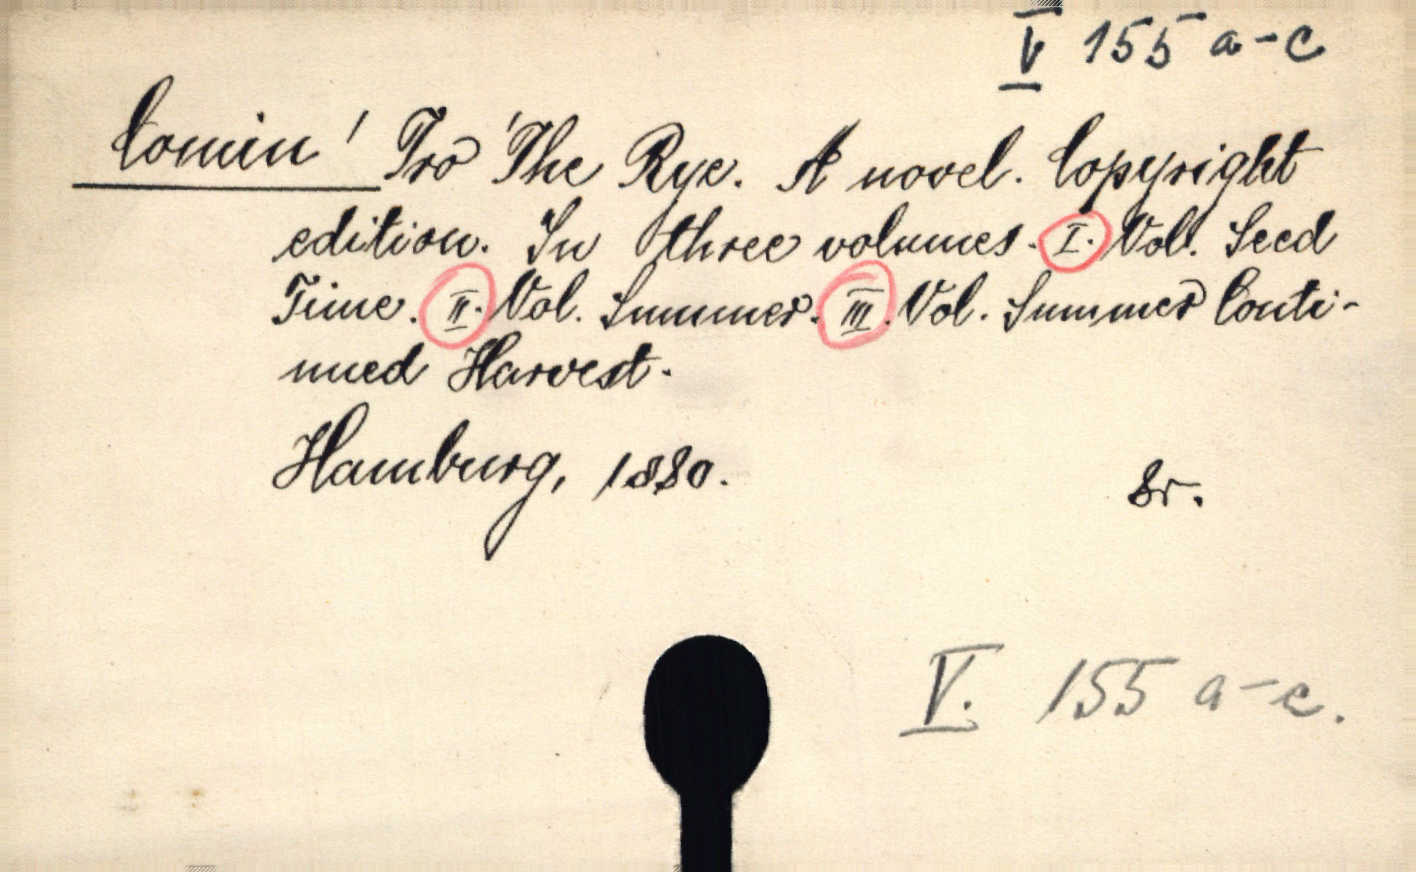 V 155 a-c
Comin' Tro 'The Rye. A novel. Copyright
edition. In three volumes. I. Vol. Seed
Time. II. Vol. Summer. III. Vol. Summer Conti-
nued Harvest.
Hamburg, 1880.
8r.
V. 155 a-c.